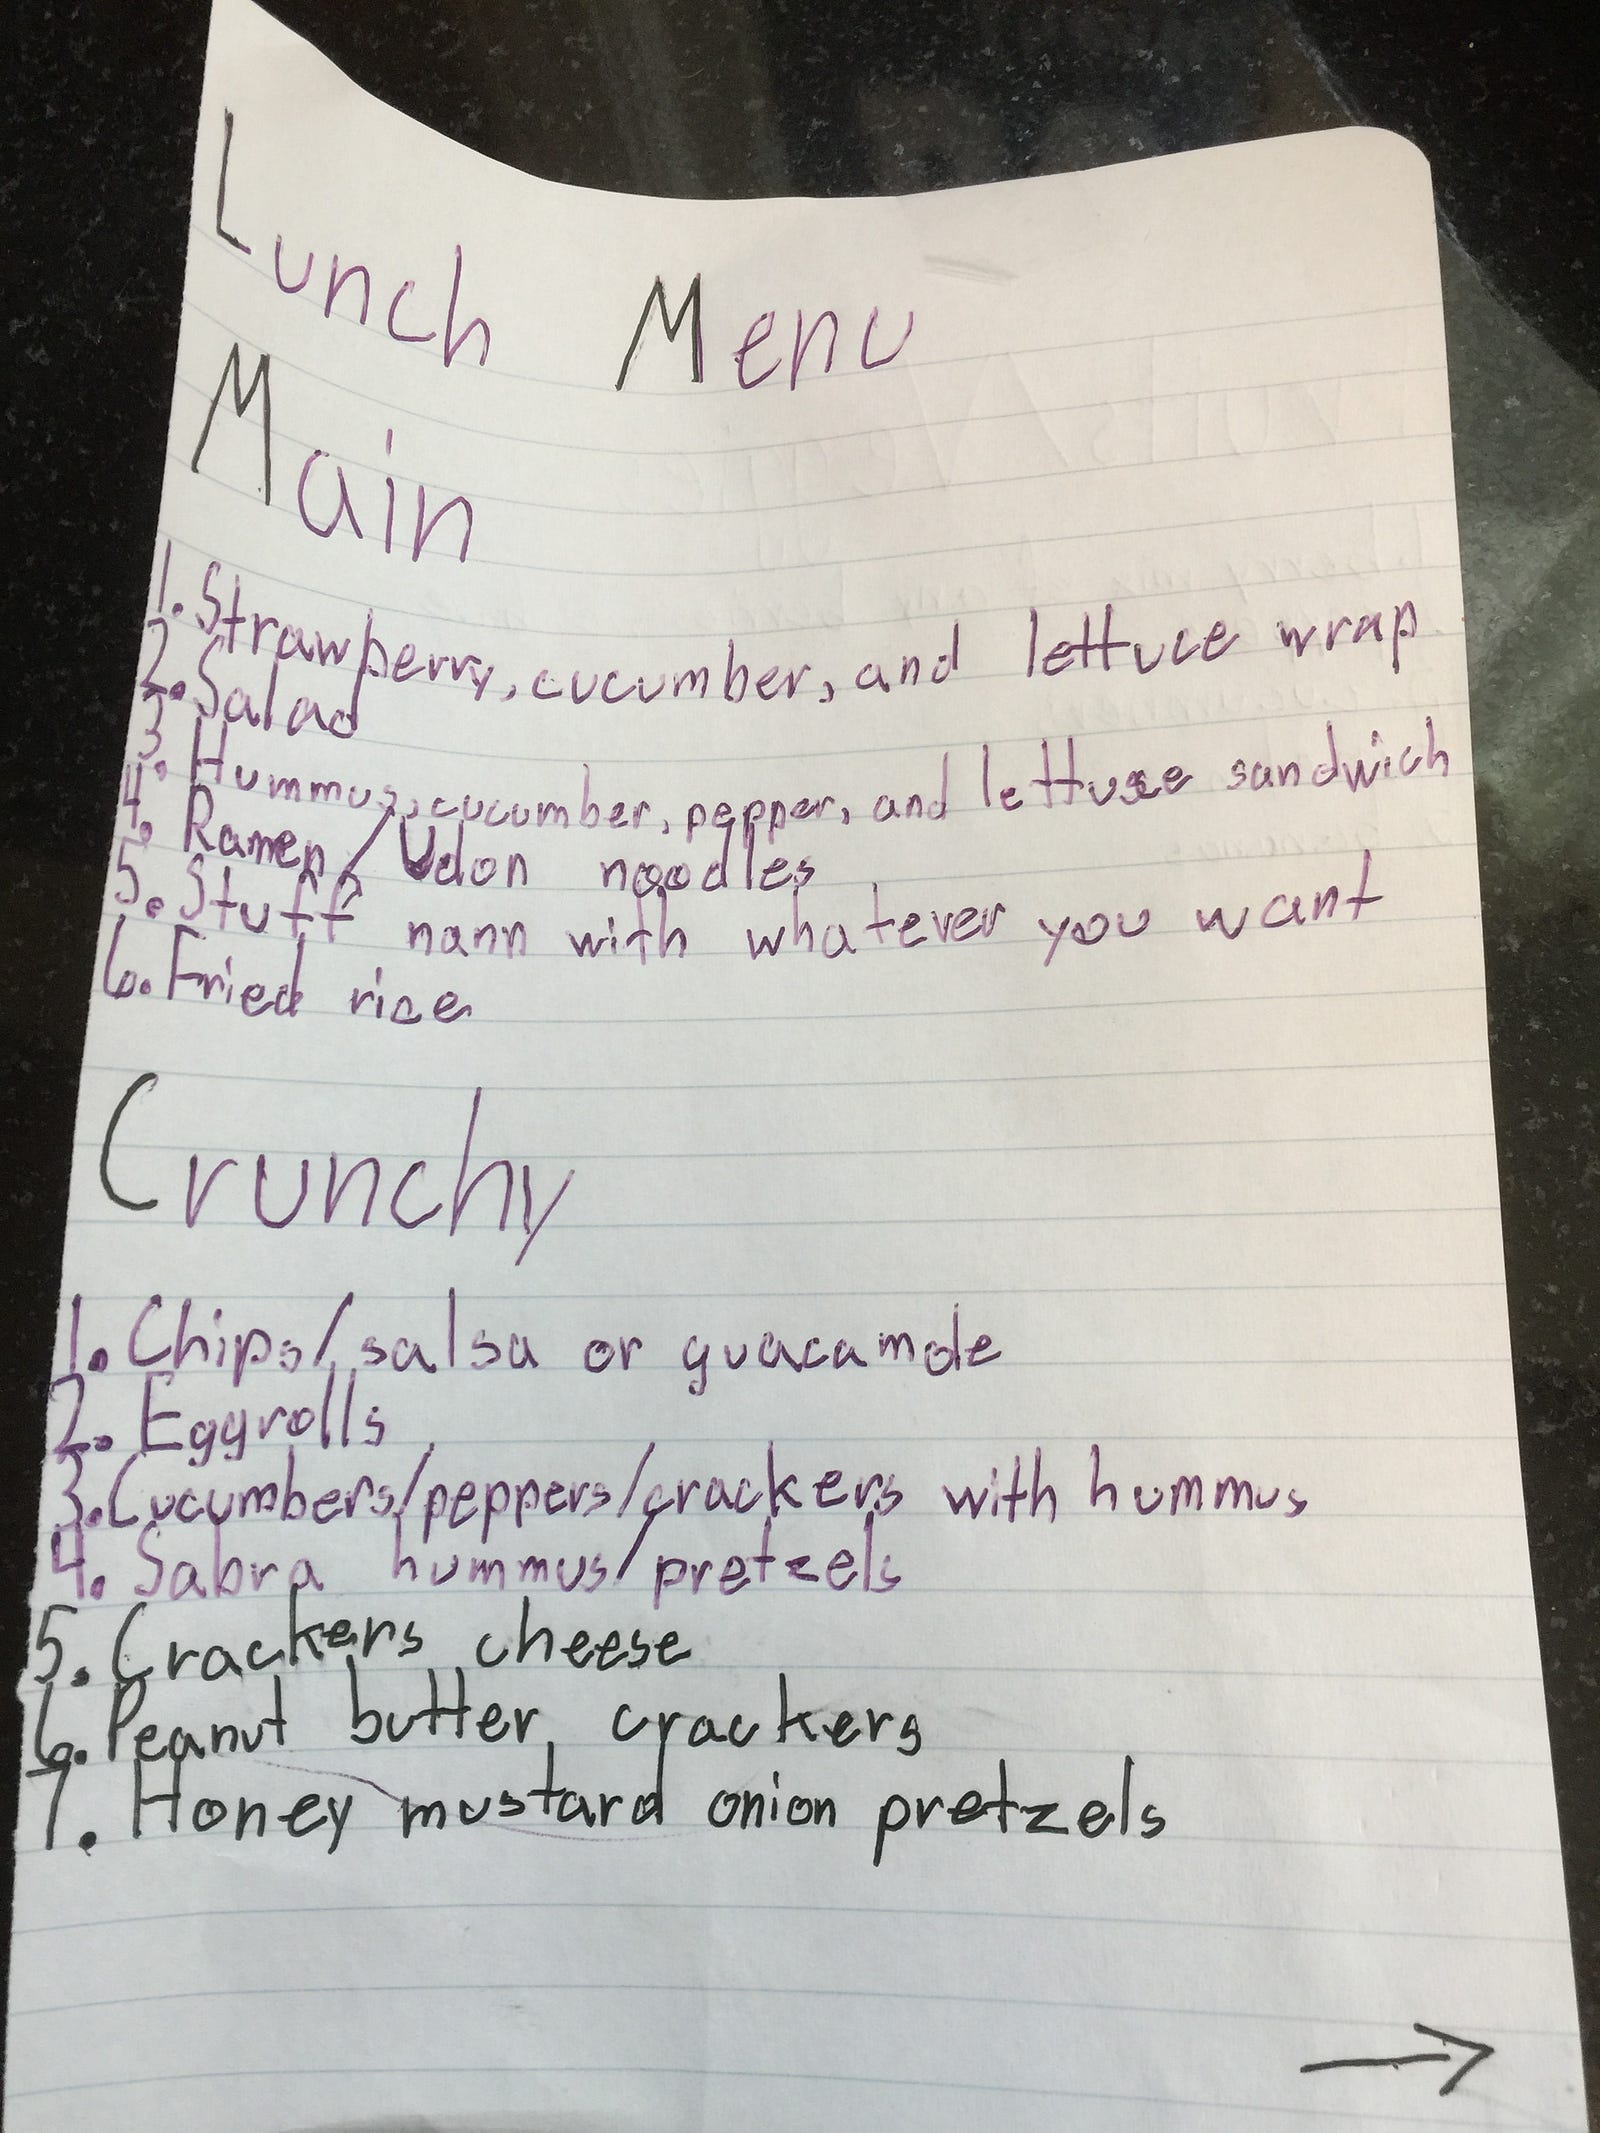 Lunch Menu
Main
1. Strawberry, cucumber, and lettuce wrap
2. Salad
3. Hummus, cucumber, pepper, and lettuce sandwich
4. Ramen/Udon noodles
5. Stuff nann with whatever you want
6. Fried rice
Crunchy
1. Chips/salsa or guacamole
2. Eggrolls
3. Cucumbers/peppers/crackers with hummus
4. Sabra hummus/pretzels
5. Crackers cheese
6. Peanut butter crackers
7. Honey mustard onion pretzels